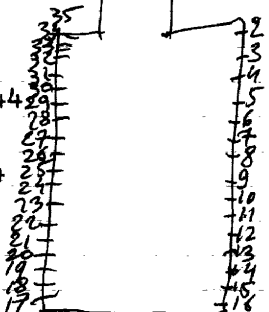 35
34
33
32
31
30
+4 29
28
27
26
25
24
23
22
21
20
19
18
17
2
3
4
5
6
7
8
9
10
11
12
13
14
15
16